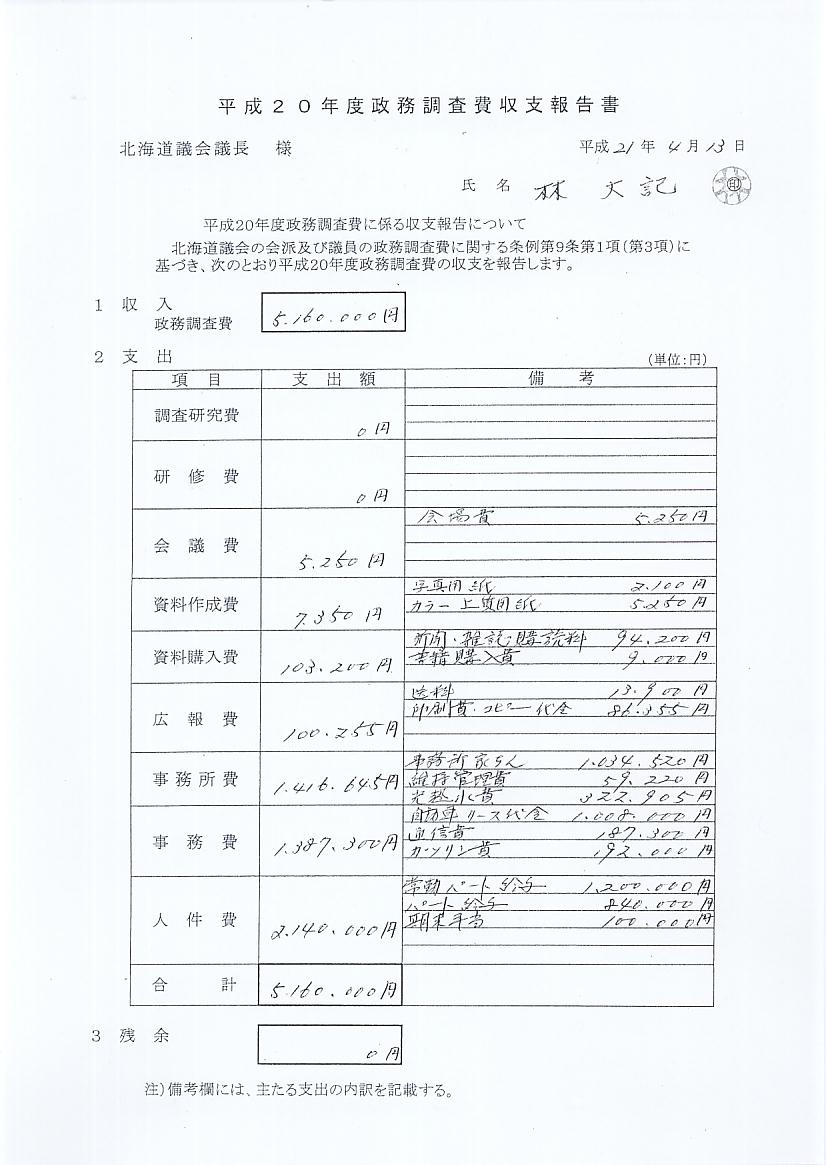 平成２０年度政務調査費収支報告書
北海道議会議長　様
平成21年4月13日
氏名 林 大記 印
平成20年度政務調査費に係る収支報告について
北海道議会の会派及び議員の政務調査費に関する条例第9条第1項(第3項)に
基づき、次のとおり平成20年度政務調査費の収支を報告します。
1 収入
政務調査費 5.160.000円
2 支出
(単位:円)
項目 支出額 備考
調査研究費 0円
研修費 0円
会場費 5.250円
会議費 5.250円
写真用紙 2.100円
資料作成費 7.350円
カラー上質用紙 5.250円
新聞・雑誌購読料 94.200円
資料購入費 103.200円
書籍購入費 9.000円
送料 13.900円
印刷費・コピー代金 86.355円
広報費 100.255円
事務所家ちん 1.034.520円
事務所費 1.416.645円
維持管理費 59.220円
光熱水費 322.905円
自動車リース代金 1.008.000円
通信費 187.300円
事務費 1.387.300円
ガソリン費 192.000円
常勤パート給与 1.200.000円
パート給与 840.000円
人件費 2.140.000円
期末手当 100.000円
合計 5.160.000円
3 残余
0円
注)備考欄には、主たる支出の内訳を記載する。